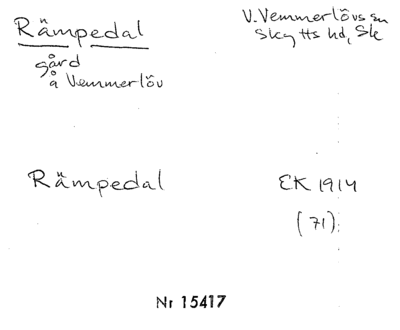 Rämpedal
V. Vemmerlövs sn
Skytts hd, Sk
gård
å Vemmerlöv
Rämpedal
EK 1914
(71)
Nr 15417